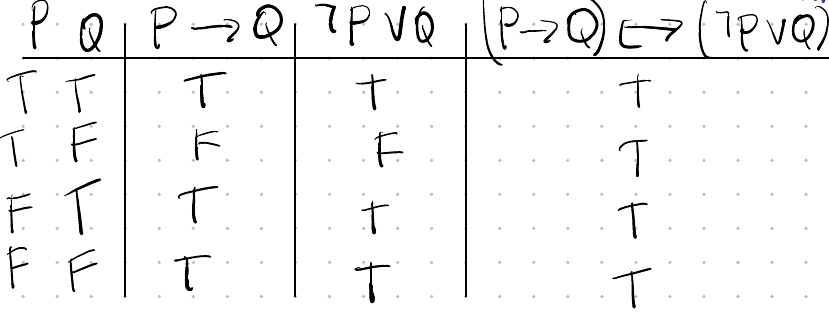 P Q P → Q ¬P ∨ Q (P → Q) ↔ (¬P ∨ Q)
T T T T T
T F F F T
F T T T T
F F T T T